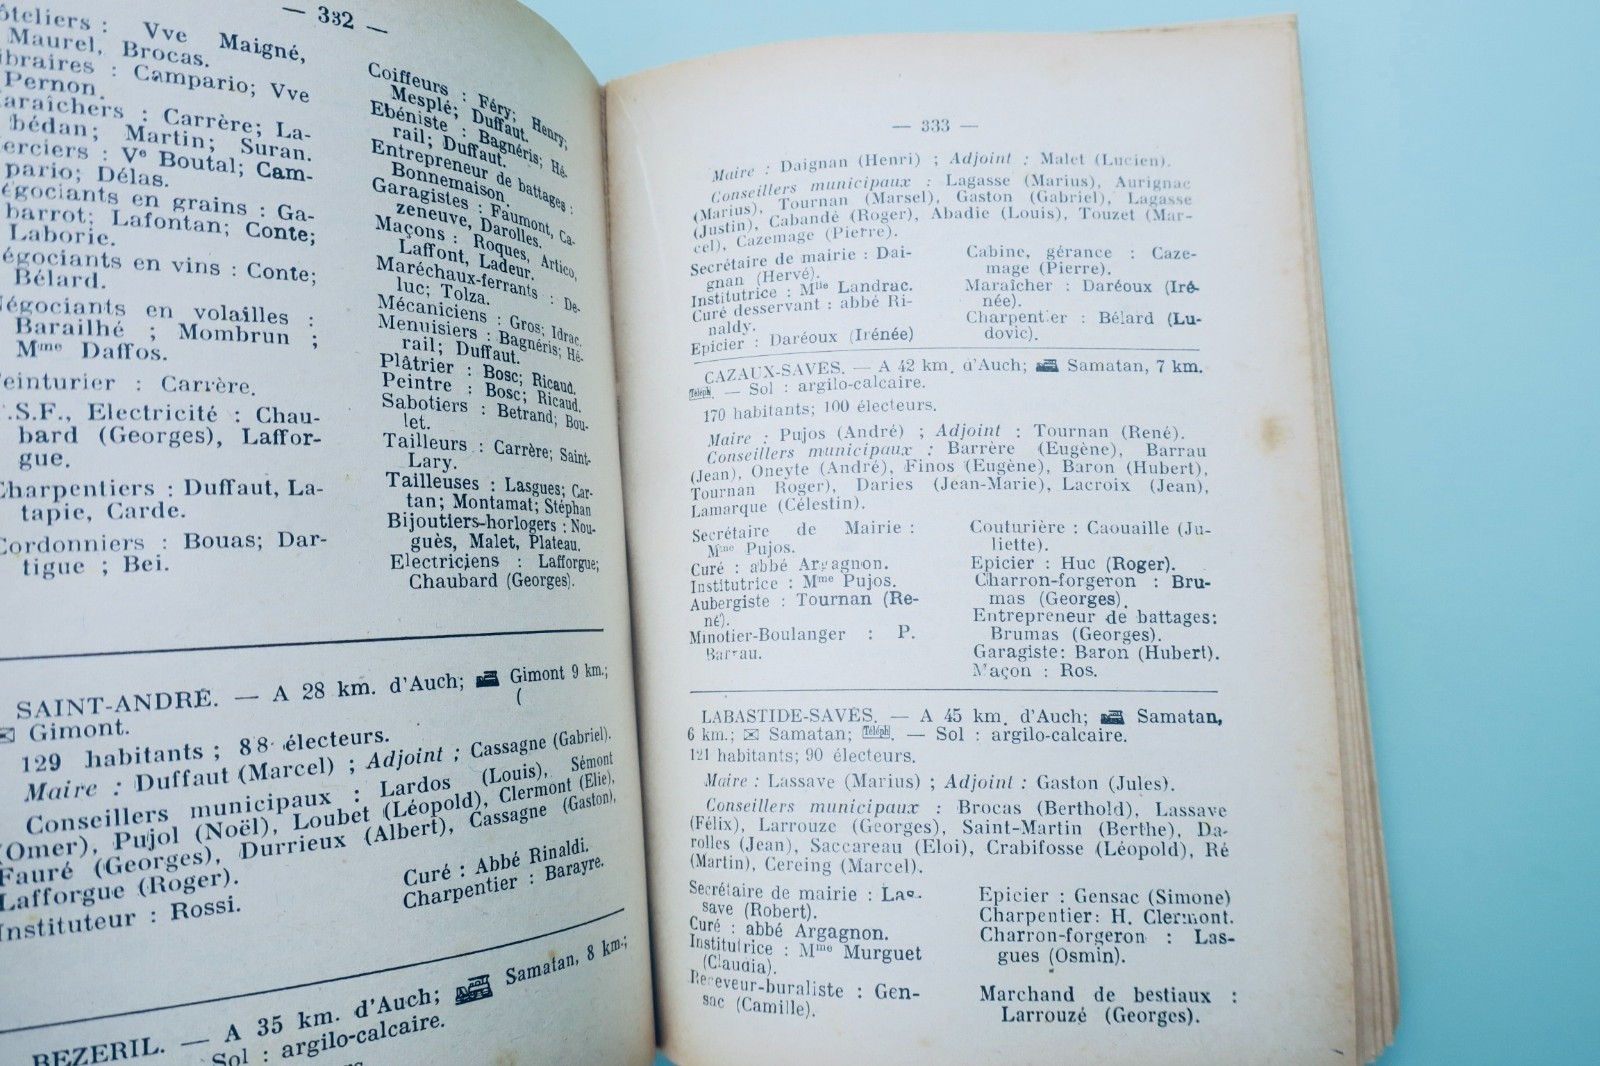 — 332 —
Vve Maigné,
Maurel, Brocas.
: Campario; Vve
Pernon.
: Carrère; La-
bédan; Martin; Suran.
: Ve Boutal; Cam-
pario; Délas.
en grains : Ga-
barrot; Lafontan; Conte;
Laborie.
en vins : Conte;
Bélard.
Négociants en volailles :
Barailhé ; Mombrun ;
Mme Daffos.
: Carrère.
Electricité : Chau-
bard (Georges), Laffor-
gue.
Charpentiers : Duffaut, La-
tapie, Carde.
Cordonniers : Bouas; Dar-
tigue ; Bei.
Coiffeurs : Féry; Henry;
Mesplé; Duffaut.
Ebéniste : Bagnéris; Hé-
rail; Duffaut.
Entrepreneur de battages :
Bonnemaison.
Garagistes : Faumont, Ca-
zeneuve, Darolles.
Maçons : Roques, Artico,
Laffont, Ladeur.
Maréchaux-ferrants : De-
luc; Tolza.
Mécaniciens : Gros; Idrac.
Menuisiers : Bagnéris; Hé-
rail; Duffaut.
Plâtrier : Bosc; Ricaud.
Peintre : Bosc; Ricaud.
Sabotiers : Betrand; Bou-
let.
Tailleurs : Carrère; Saint-
Lary.
Tailleuses : Lasgues; Car-
tan; Montamat; Stéphan
Bijoutiers-horlogers : Nou-
guès, Malet, Plateau.
Electriciens : Lafforgue;
Chaubard (Georges).
SAINT-ANDRÉ. — A 28 km. d'Auch; Gimont 9 km.;
( Gimont.
129 habitants ; 88 électeurs.
Maire : Duffaut (Marcel) ; Adjoint ; Cassagne (Gabriel).
Conseillers municipaux : Lardos (Louis), Sémont
(Omer), Pujol (Noël), Loubet (Léopold), Clermont (Elie),
Fauré (Georges), Durrieux (Albert), Cassagne (Gaston),
Lafforgue (Roger).
Instituteur : Rossi.
Curé : Abbé Rinaldi.
Charpentier : Barayre.
BEZERIL. — A 35 km. d'Auch; Samatan, 8 km.;
Sol : argilo-calcaire.
— 333 —
Maire : Daignan (Henri) ; Adjoint : Malet (Lucien).
Conseillers municipaux : Lagasse (Marius), Aurignac
(Marius), Tournan (Marsel), Gaston (Gabriel), Lagasse
(Justin), Cabandé (Roger), Abadie (Louis), Touzet (Mar-
cel), Cazemage (Pierre).
Secrétaire de mairie : Dai-
gnan (Hervé).
Institutrice : Mlle Landrac.
Curé desservant : abbé Ri-
naldy.
Epicier : Daréoux (Irénée)
Cabine, gérance : Caze-
mage (Pierre).
Maraîcher : Daréoux (Iré-
née).
Charpentier : Bélard (Lu-
dovic).
CAZAUX-SAVÈS. — A 42 km. d'Auch; Samatan, 7 km.
Téléph. — Sol : argilo-calcaire.
170 habitants; 100 électeurs.
Maire : Pujos (André) ; Adjoint : Tournan (René).
Conseillers municipaux : Barrère (Eugène), Barrau
(Jean), Oneyte (André), Finos (Eugène), Baron (Hubert),
Tournan Roger), Daries (Jean-Marie), Lacroix (Jean),
Lamarque (Célestin).
Secrétaire de Mairie :
Mme Pujos.
Curé : abbé Argagnon.
Institutrice : Mme Pujos.
Aubergiste : Tournan (Re-
né).
Minotier-Boulanger : P.
Barrau.
Couturière : Caouaille (Ju-
liette).
Epicier : Huc (Roger).
Charron-forgeron : Bru-
mas (Georges).
Entrepreneur de battages:
Brumas (Georges).
Garagiste: Baron (Hubert).
Maçon : Ros.
LABASTIDE-SAVÈS. — A 45 km. d'Auch; Samatan,
6 km.; Samatan; Téléph. — Sol : argilo-calcaire.
121 habitants; 90 électeurs.
Maire : Lassave (Marius) ; Adjoint : Gaston (Jules).
Conseillers municipaux : Brocas (Berthold), Lassave
(Félix), Larrouze (Georges), Saint-Martin (Berthe), Da-
rolles (Jean), Saccareau (Eloi), Crabifosse (Léopold), Ré
(Martin), Cereing (Marcel).
Secrétaire de mairie : Las-
save (Robert).
Curé : abbé Argagnon.
Institutrice : Mme Murguet
(Claudia).
Receveur-buraliste : Gen-
sac (Camille).
Epicier : Gensac (Simone)
Charpentier: H. Clermont.
Charron-forgeron : Las-
gues (Osmin).
Marchand de bestiaux :
Larrouzé (Georges).